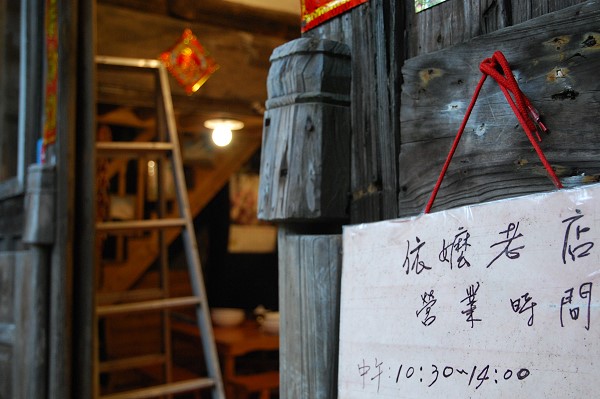 依嬤老店
營業時間
中午:10:30~14:00